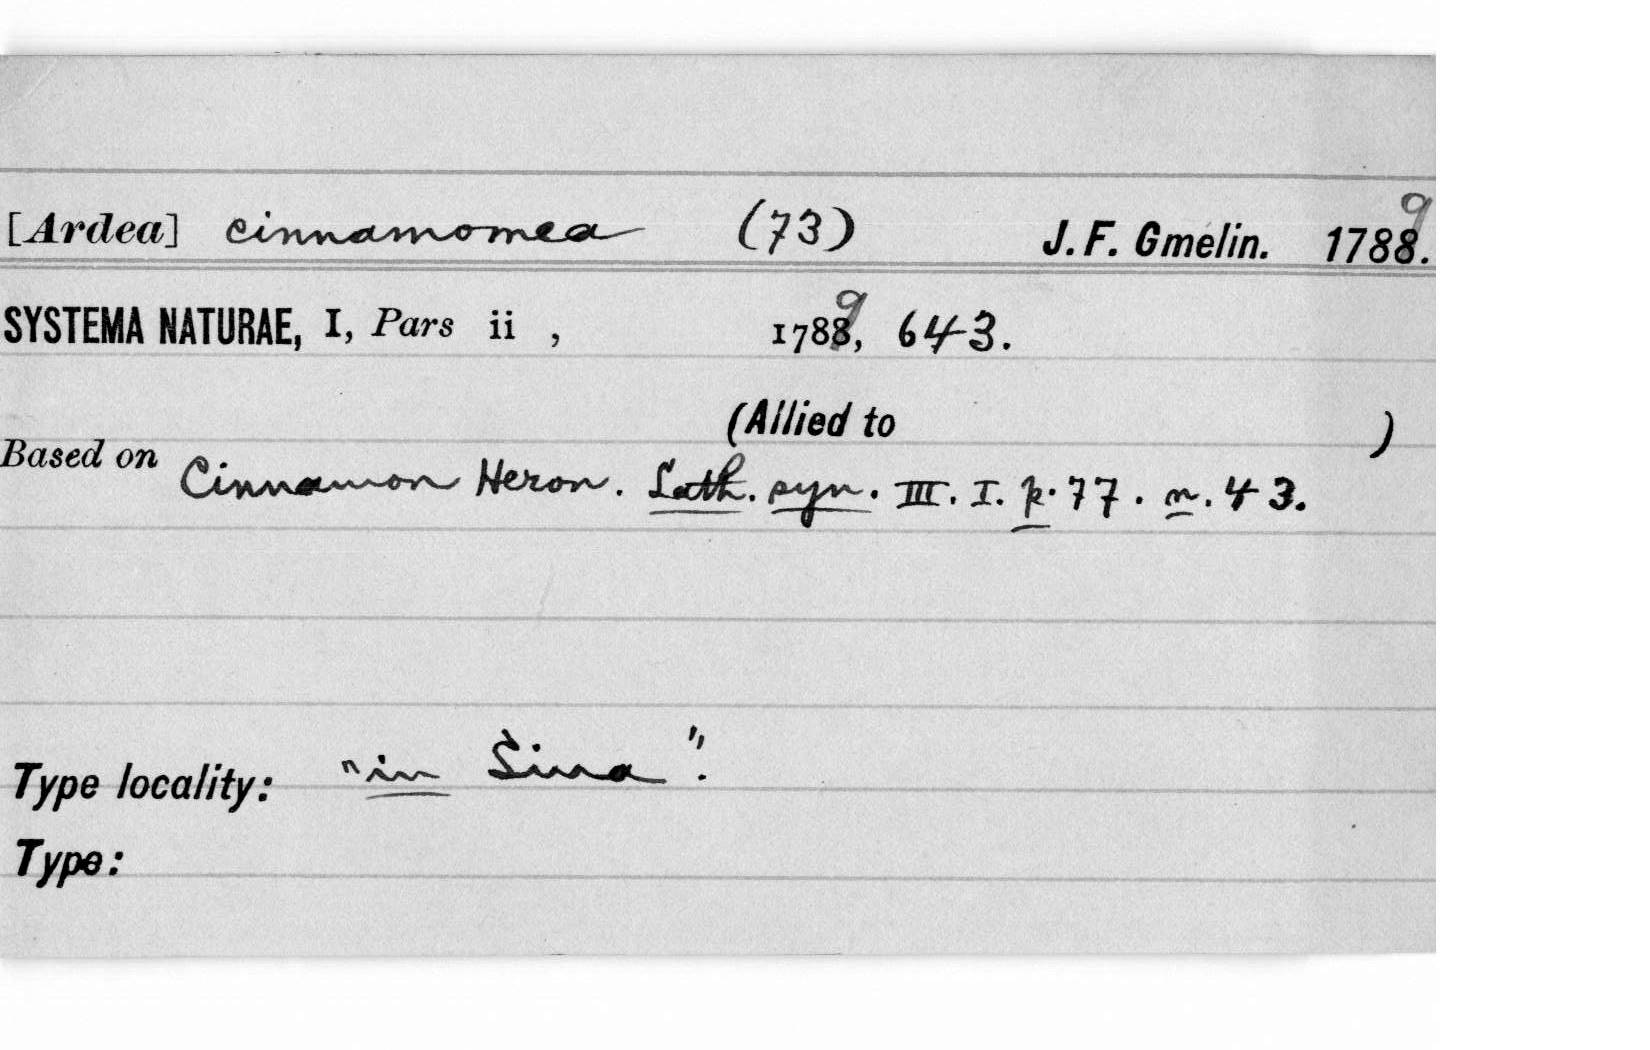 [Ardea] cinnamomea (73) J. F. Gmelin. 1788.9
SYSTEMA NATURAE, I, Pars ii , 17889, 643.
(Allied to )
Based on Cinnamon Heron. Lath. syn. III. I. p. 77. n. 43.
Type locality: "in Sina".
Type: